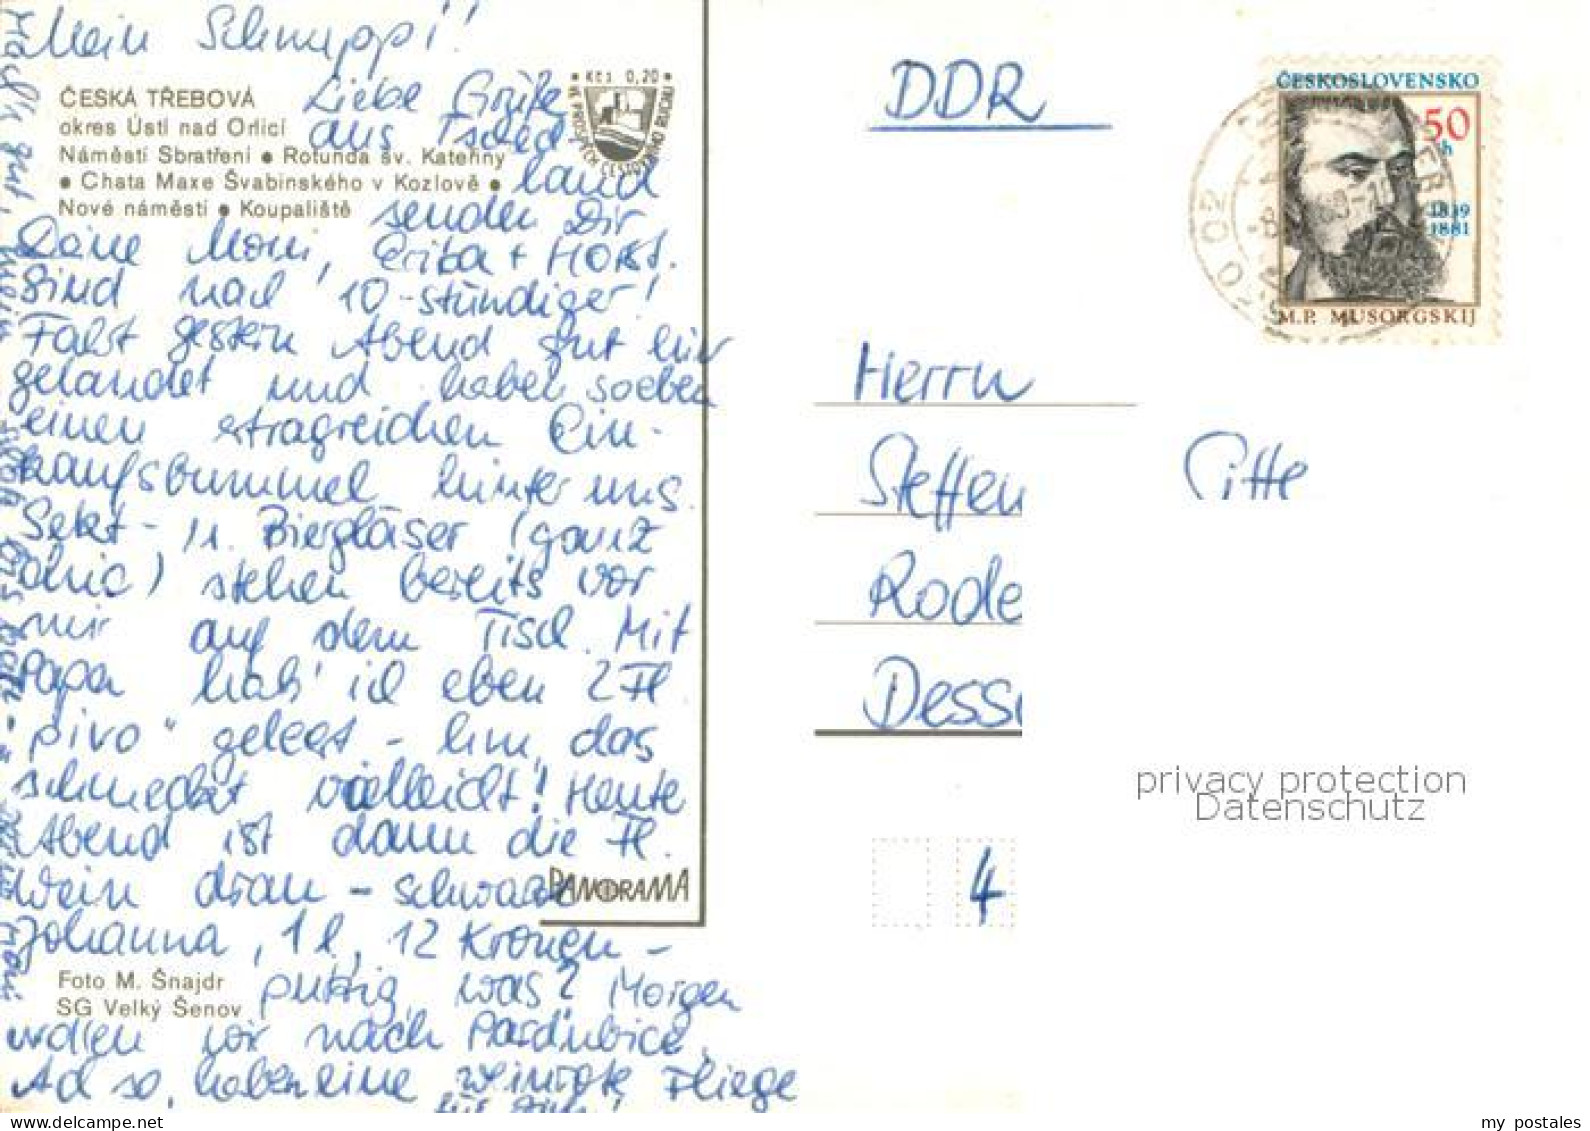 Mein Schnuppi!
ČESKÁ TŘEBOVÁ
okres Ústí nad Orlicí
Náměstí Sbratření • Rotunda sv. Kateřiny
• Chata Maxe Švabinského v Kozlově •
Nové náměstí • Koupaliště
Kčs 0,20
Liebe Grüße
aus Tsched
land
senden Dir
Deine Moni, Erika + Horst.
Sind nach 10-stündiger
Fahrt gestern Abend gut hier
gelandet und haben soeben
einen ertragreichen Ein-
kaufsbummel hinter uns.
Sekt- u. Biergläser (ganz
chic) stehen bereits vor
mir auf dem Tisch. Mit
Papa hab' ich eben 2 Fl.
"pivo" gelegt - hm, das
schmeckt vielleicht! Heute
Abend ist dann die Fl.
Wein dran - schwarze
Johanna, 1 l, 12 Kronen -
putzig, was? Morgen
wollen wir nach Pardubice.
Ach so, haben eine weinrote Fliege
für Dich!
Mach's gut, mein
PANORAMA
Foto M. Šnajdr
SG Velký Šenov
DDR
ČESKOSLOVENSKO
50 h
1839
1881
M.P. MUSORGSKIJ
Herrn
Steffen Titte
Rode
Dess
privacy protection
Datenschutz
4
my postales